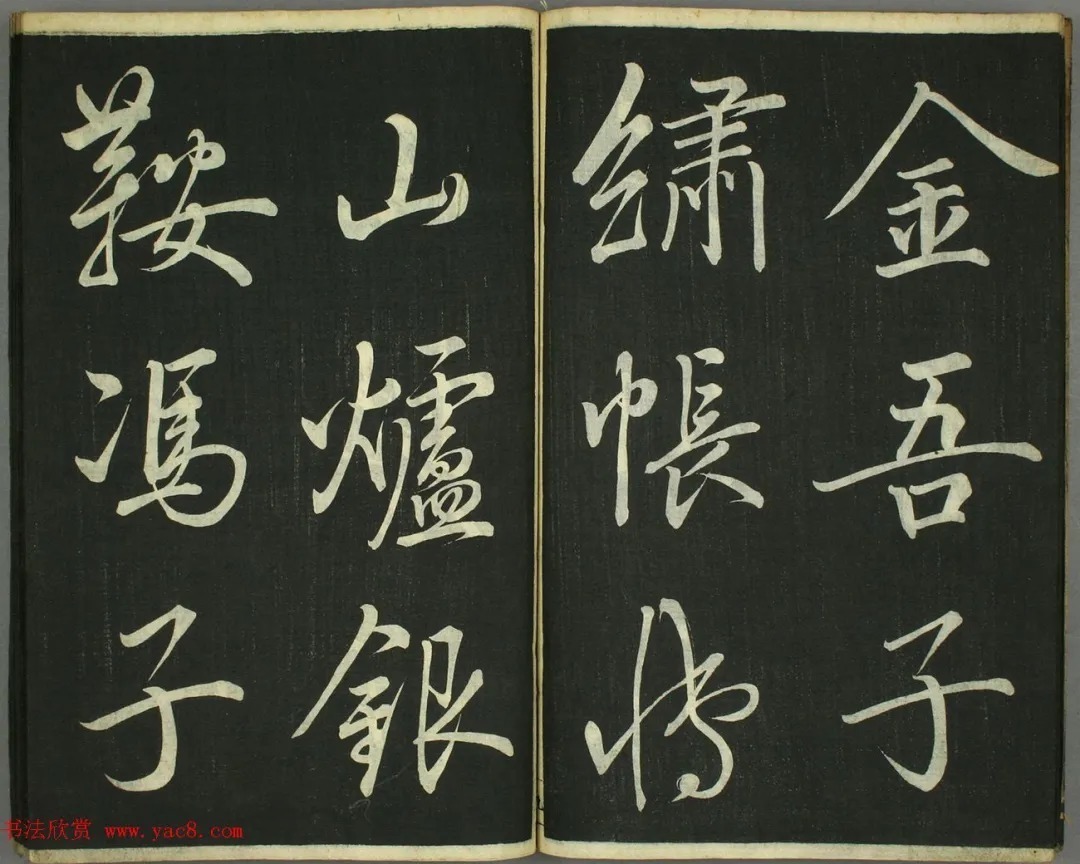 金吾子
繡帳博
山爐銀
鞍馮子
书法欣赏 www.yac8.com